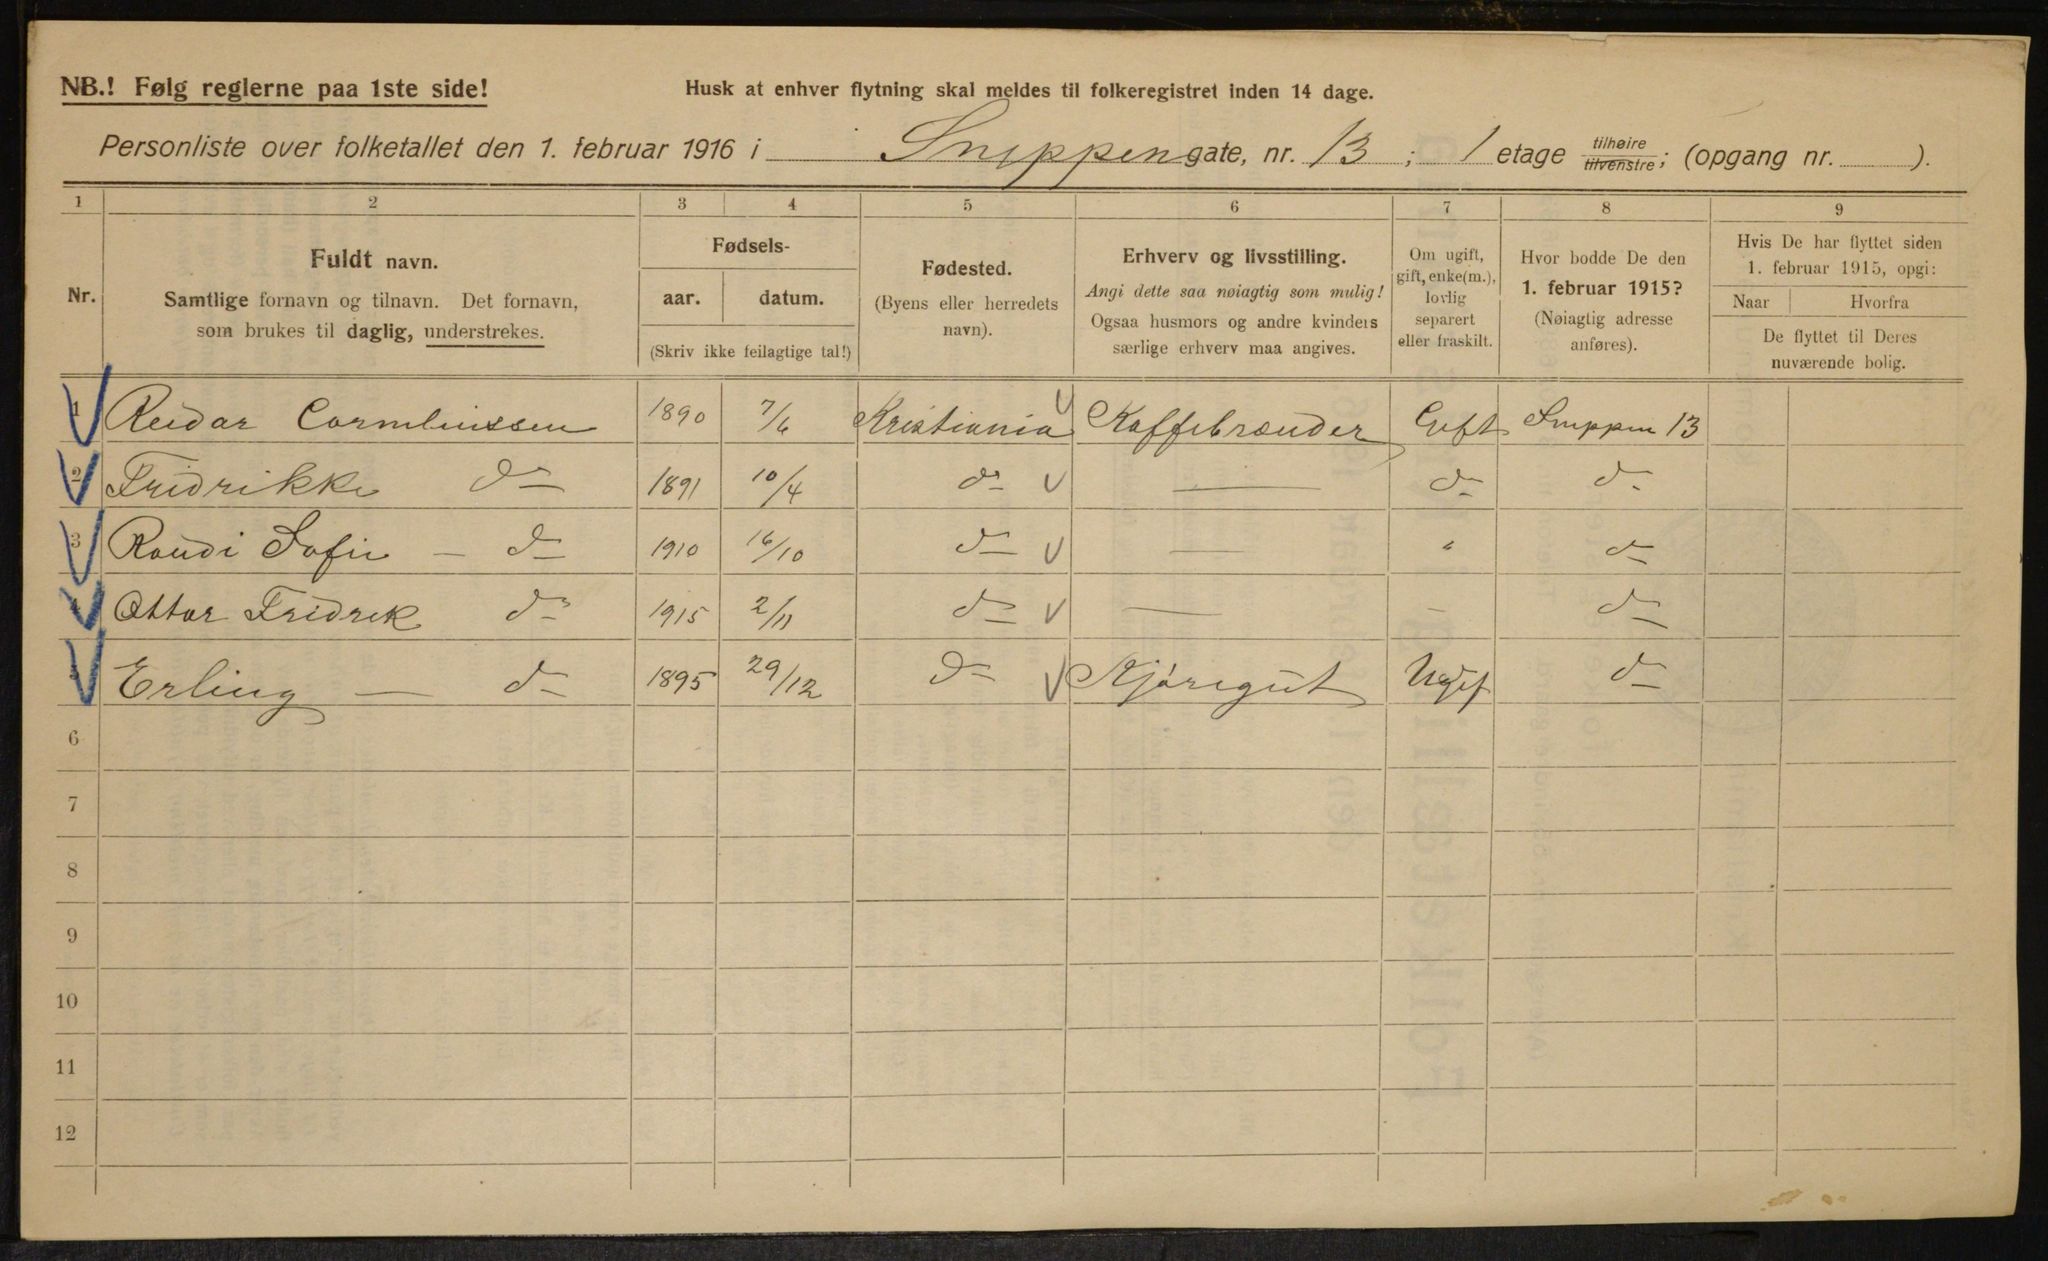 NB.! Følg reglerne paa 1ste side!
Husk at enhver flytning skal meldes til folkeregistret inden 14 dage.
Personliste over folketallet den 1. februar 1916 i Snippen gate, nr. 13 ; 1 etage tilhøire tilvenstre; (opgang nr. ).
1 2 3 4 5 6 7 8 9
Nr.
Fuldt navn.
Samtlige fornavn og tilnavn. Det fornavn,
som brukes til daglig, understrekes.
Fødsels-
aar. datum.
(Skriv ikke feilagtige tal!)
Fødested.
(Byens eller herredets
navn).
Erhverv og livsstilling.
Angi dette saa nøiagtig som mulig!
Ogsaa husmors og andre kvinders
særlige erhverv maa angives.
Om ugift,
gift, enke(m.),
lovlig
separert
eller fraskilt.
Hvor bodde De den
1. februar 1915?
(Nøiagtig adresse
anføres).
Hvis De har flyttet siden
1. februar 1915, opgi:
Naar Hvorfra
De flyttet til Deres
nuværende bolig.
1 Reidar 1890 7/6 Kristiania Kaffebrænder Gift Snippen 13
2 Fridrikke do 1891 10/4 do — do do
3 Randi Sofie — do 1910 16/10 do — " do
4 Ottar Fridrik do 1915 2/11 do — - do
5 Erling — do 1895 29/12 do Kjøregut Ugif do
6
7
8
9
10
11
12